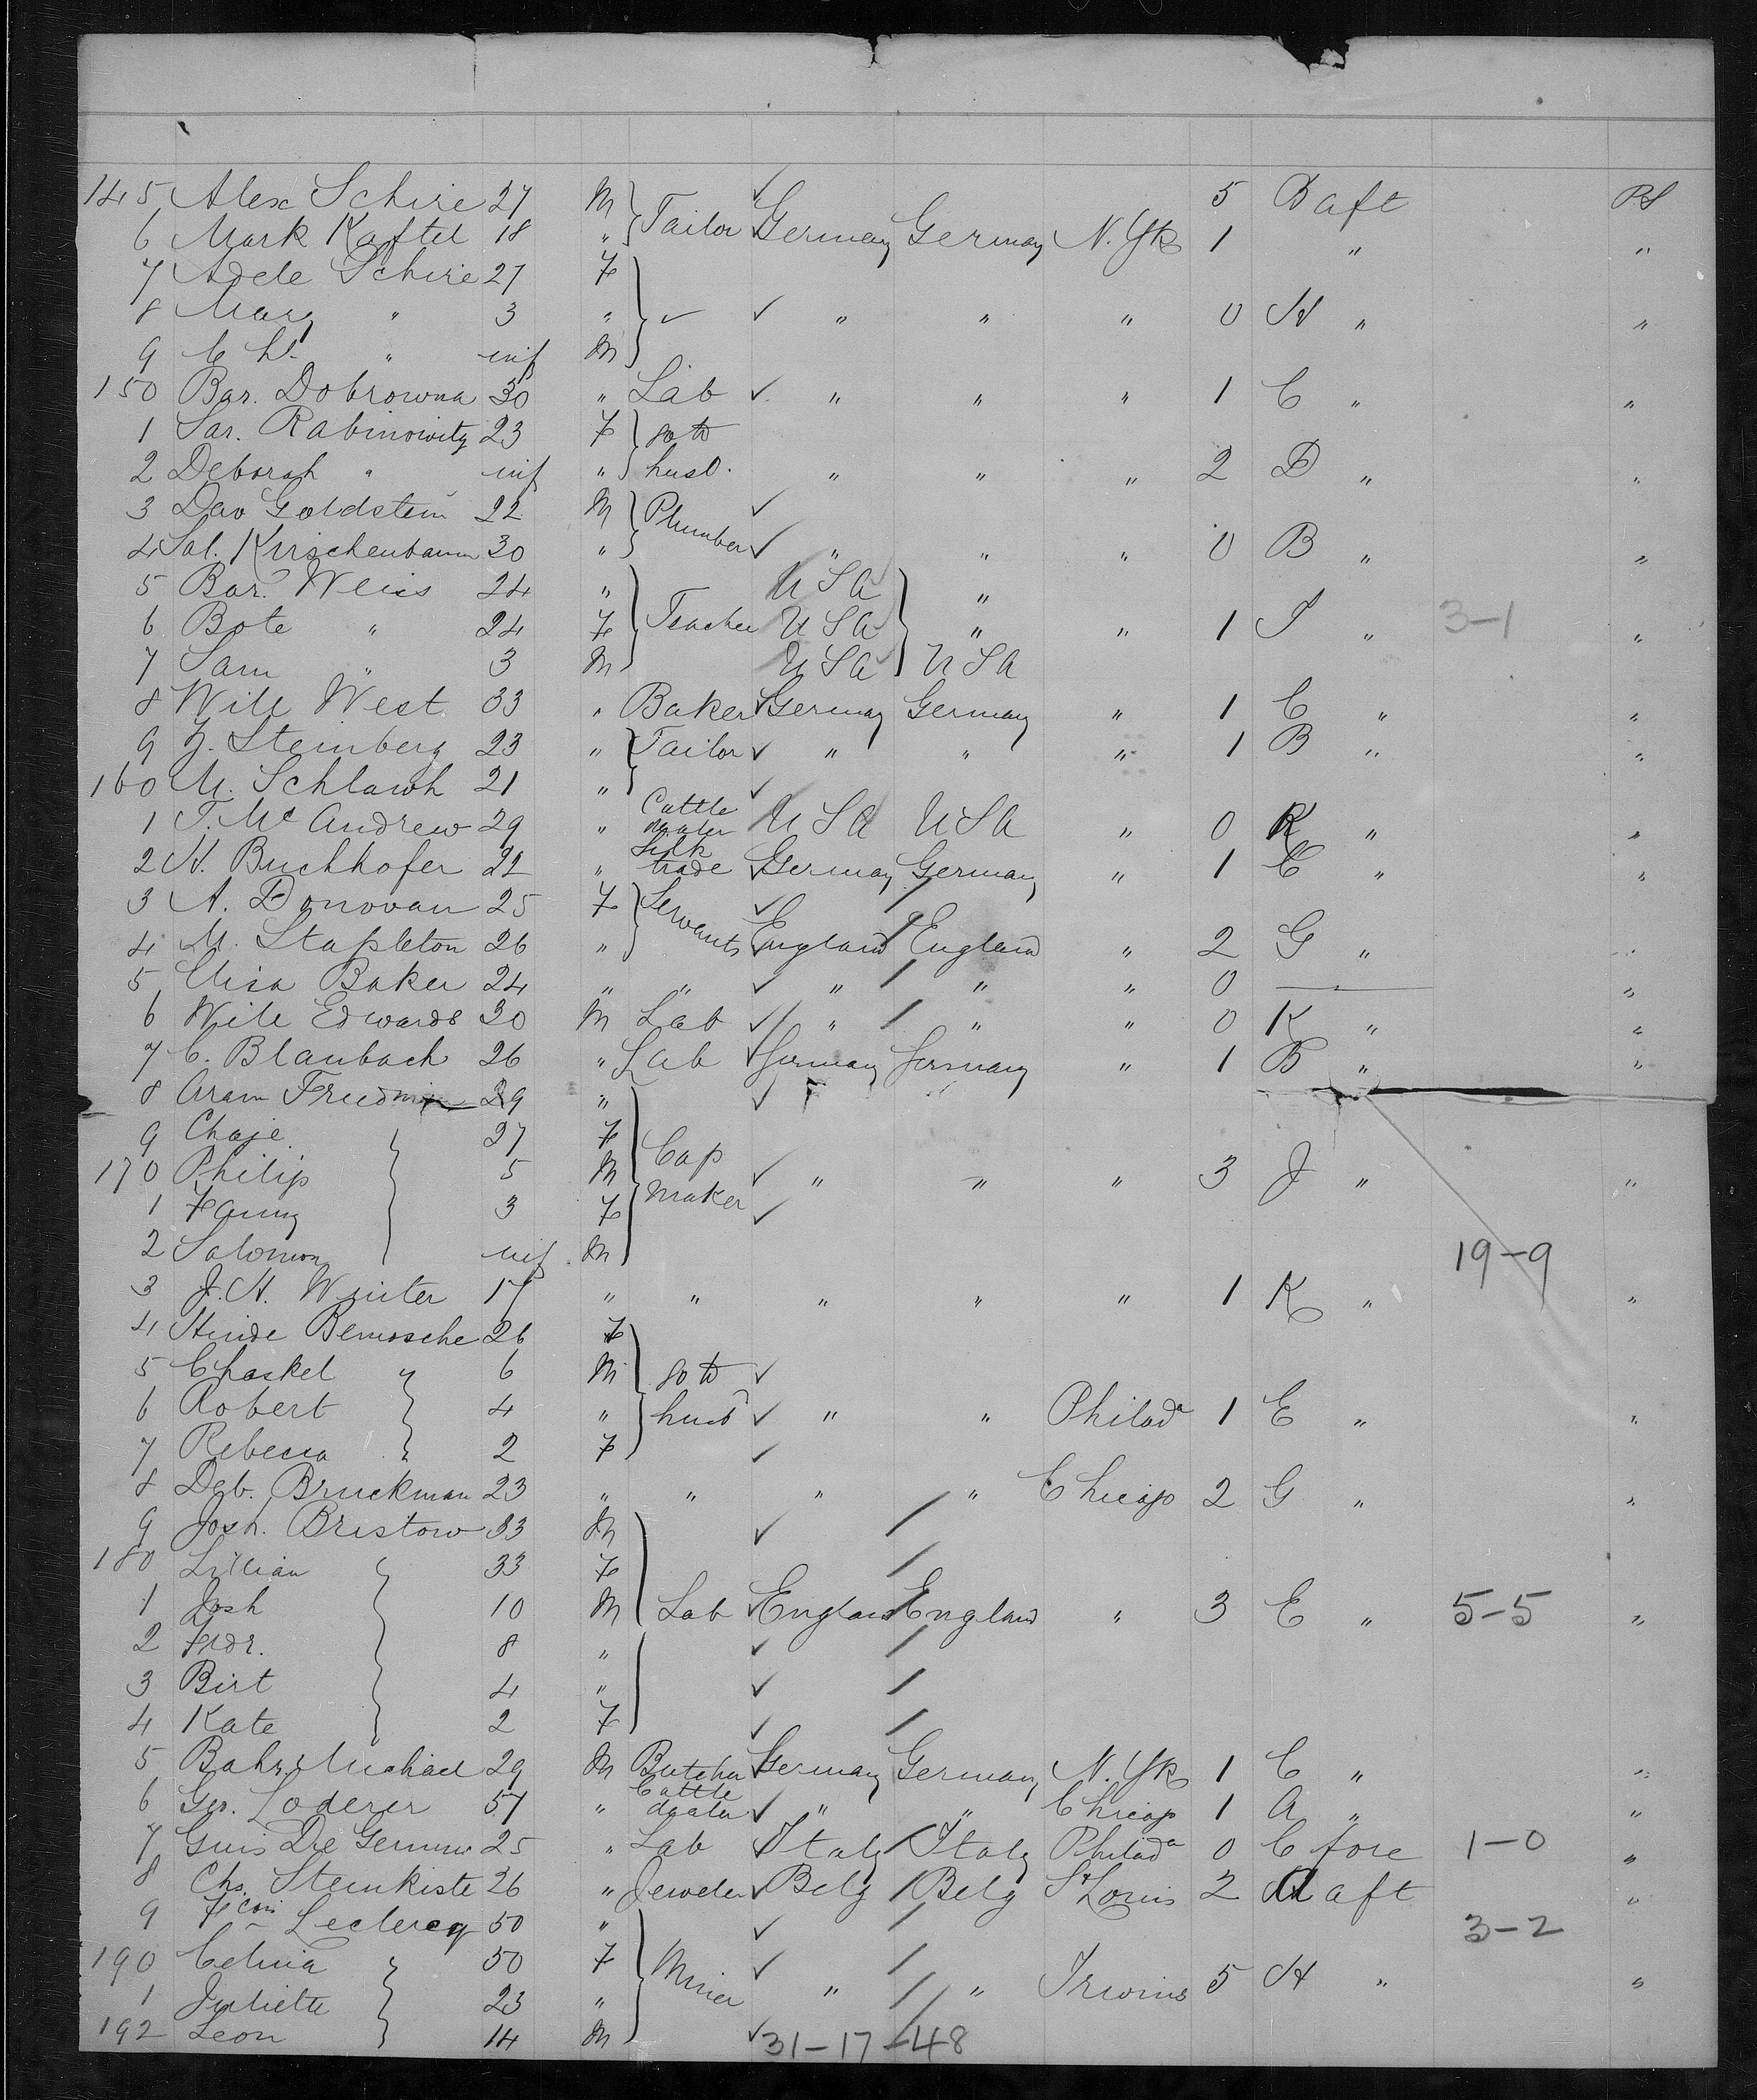 145 Alex Schire 27 M Tailor 5 D aft PS
6 Mark Kaftel 18 " Germany Germany N. Yk 1 " "
7 Adele Schire 27 F
8 Mary " 3 " " " " 0 H " "
9 Ch. " inf M
150 Bar. Dobrowna 30 " Lab " " " 1 C " "
1 Sar. Rabinowitz 23 F go to
2 Deborah " inf " husb. " " " 2 D " "
3 Dav Goldstein 22 M Plumber
4 Sal. Kirschenbaum 30 " " " " 0 B " "
5 Bar. Weiss 24 " USA "
6 Bote " 24 F Teacher USA " " 1 I " 3-1 "
7 Sam " 3 M USA USA
8 Will West 33 " Baker Germany Germany " 1 C " "
9 J. Steinberg 23 " Tailor " " " 1 B " "
160 M. Schlawh 21 "
1 T. Mc Andrew 29 " Cattle dealer USA USA " 0 K " "
2 H. Buchhofer 22 " Silk trade Germany Germany " 1 C " "
3 A. Donovan 25 F Servants
4 M. Stapleton 26 " England England " 2 G " "
5 Elisa Baker 24 " " " " " 0 "
6 Will Edwards 30 M Lab " " " 0 K " "
7 C. Blaubach 26 " Lab Germany Germany " 1 B " "
8 Aram Friedman 29 "
9 Chaje 27 F
170 Philip 5 M Cap maker " " " 3 J " "
1 Fanny 3 F
2 Salomon inf M 19-9
3 J. H. Winter 17 " " " " " 1 K " "
4 Hinde Bemosche 26 F
5 Chaskel " 6 M go to
6 Robert 4 " husb " " Philada 1 E " "
7 Rebecca 2 F
8 Deb. Bruckman 23 " " " " Chicago 2 G " "
9 Josh. Bristow 33 M
180 Lillian 33 F
1 Josh 10 M Lab England England " 3 E " 5-5 "
2 Fredr. 8 "
3 Birt 4 "
4 Kate 2 F
5 Bahr. Michael 29 M Butcher Germany Germany N. Yk 1 C " "
6 Ger. Loderer 57 " Cattle dealer " " Chicago 1 A " "
7 Guis De 25 " Lab Italy Italy Philada 0 C fore 1-0 "
8 Chs. Steinkiste 26 " Jeweler Belg Belg St Louis 2 A aft "
9 Leclercq 50 " 3-2
190 Celina " 50 F Miner " " Irwins 5 H " "
1 Juliette 23 "
192 Leon 14 M
31-17-48